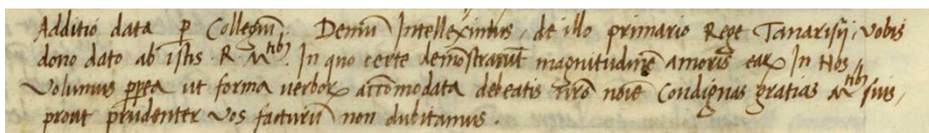 Additio data p Collegiũ. Demũ Intelleximus, de illo primario Rege Tanarisij: vobis
dono dato ab istis. R. Mtibz. In quo certe demõstrarũt magnitudinẽ amoris eaꝝ In Nos
Volumus ppea ut forma verboꝝ accõmodata debeatis nr̃o noĩe Condignas gratias Mtibz suis,
prout prudenter vos facturũ non dubitamus.